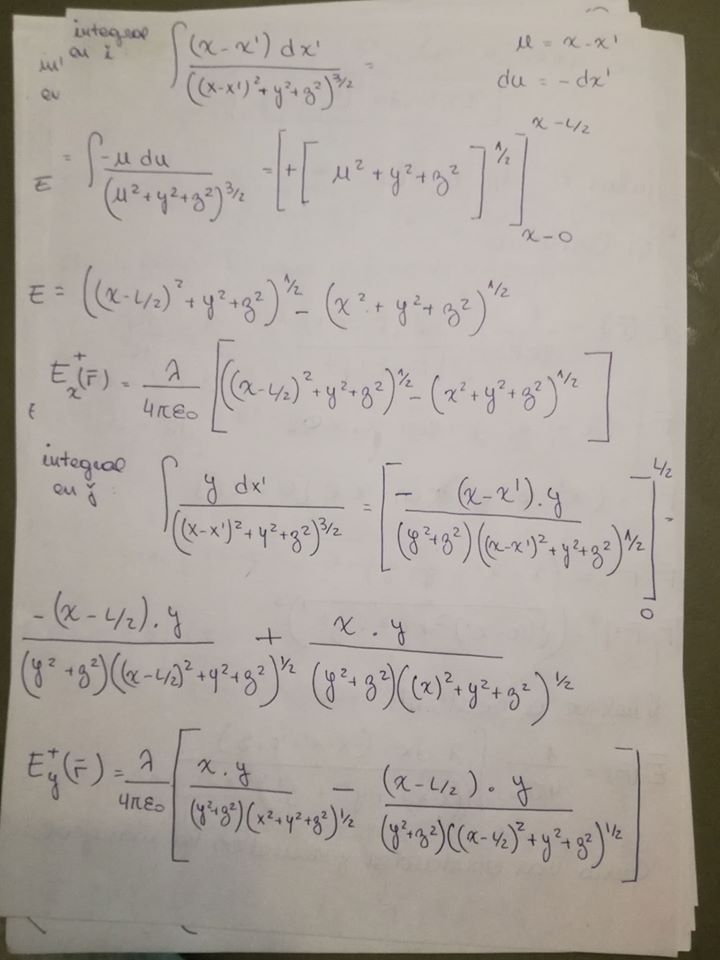 integral en i: ∫ (x-x') dx' / ((x-x')²+y²+z²)^3/2 = u = x-x'
du = -dx'
= ∫ -u du / (u²+y²+z²)^3/2 = [+[u²+y²+z²]^1/2]_{x-0}^{x-L/2}
E = ((x-L/2)²+y²+z²)^1/2 - (x²+y²+z²)^1/2
E_x^+(r̄) = λ/4πε₀ [((x-L/2)²+y²+z²)^1/2 - (x²+y²+z²)^1/2]
integral en j: ∫ y dx' / ((x-x')²+y²+z²)^3/2 = [- (x-x').y / (y²+z²)((x-x')²+y²+z²)^1/2]_0^{L/2} =
-(x-L/2).y / (y²+z²)((x-L/2)²+y²+z²)^1/2 + x.y / (y²+z²)((x)²+y²+z²)^1/2
E_y^+(r̄) = λ/4πε₀ [x.y / (y²+z²)(x²+y²+z²)^1/2 - (x-L/2).y / (y²+z²)((x-L/2)²+y²+z²)^1/2]